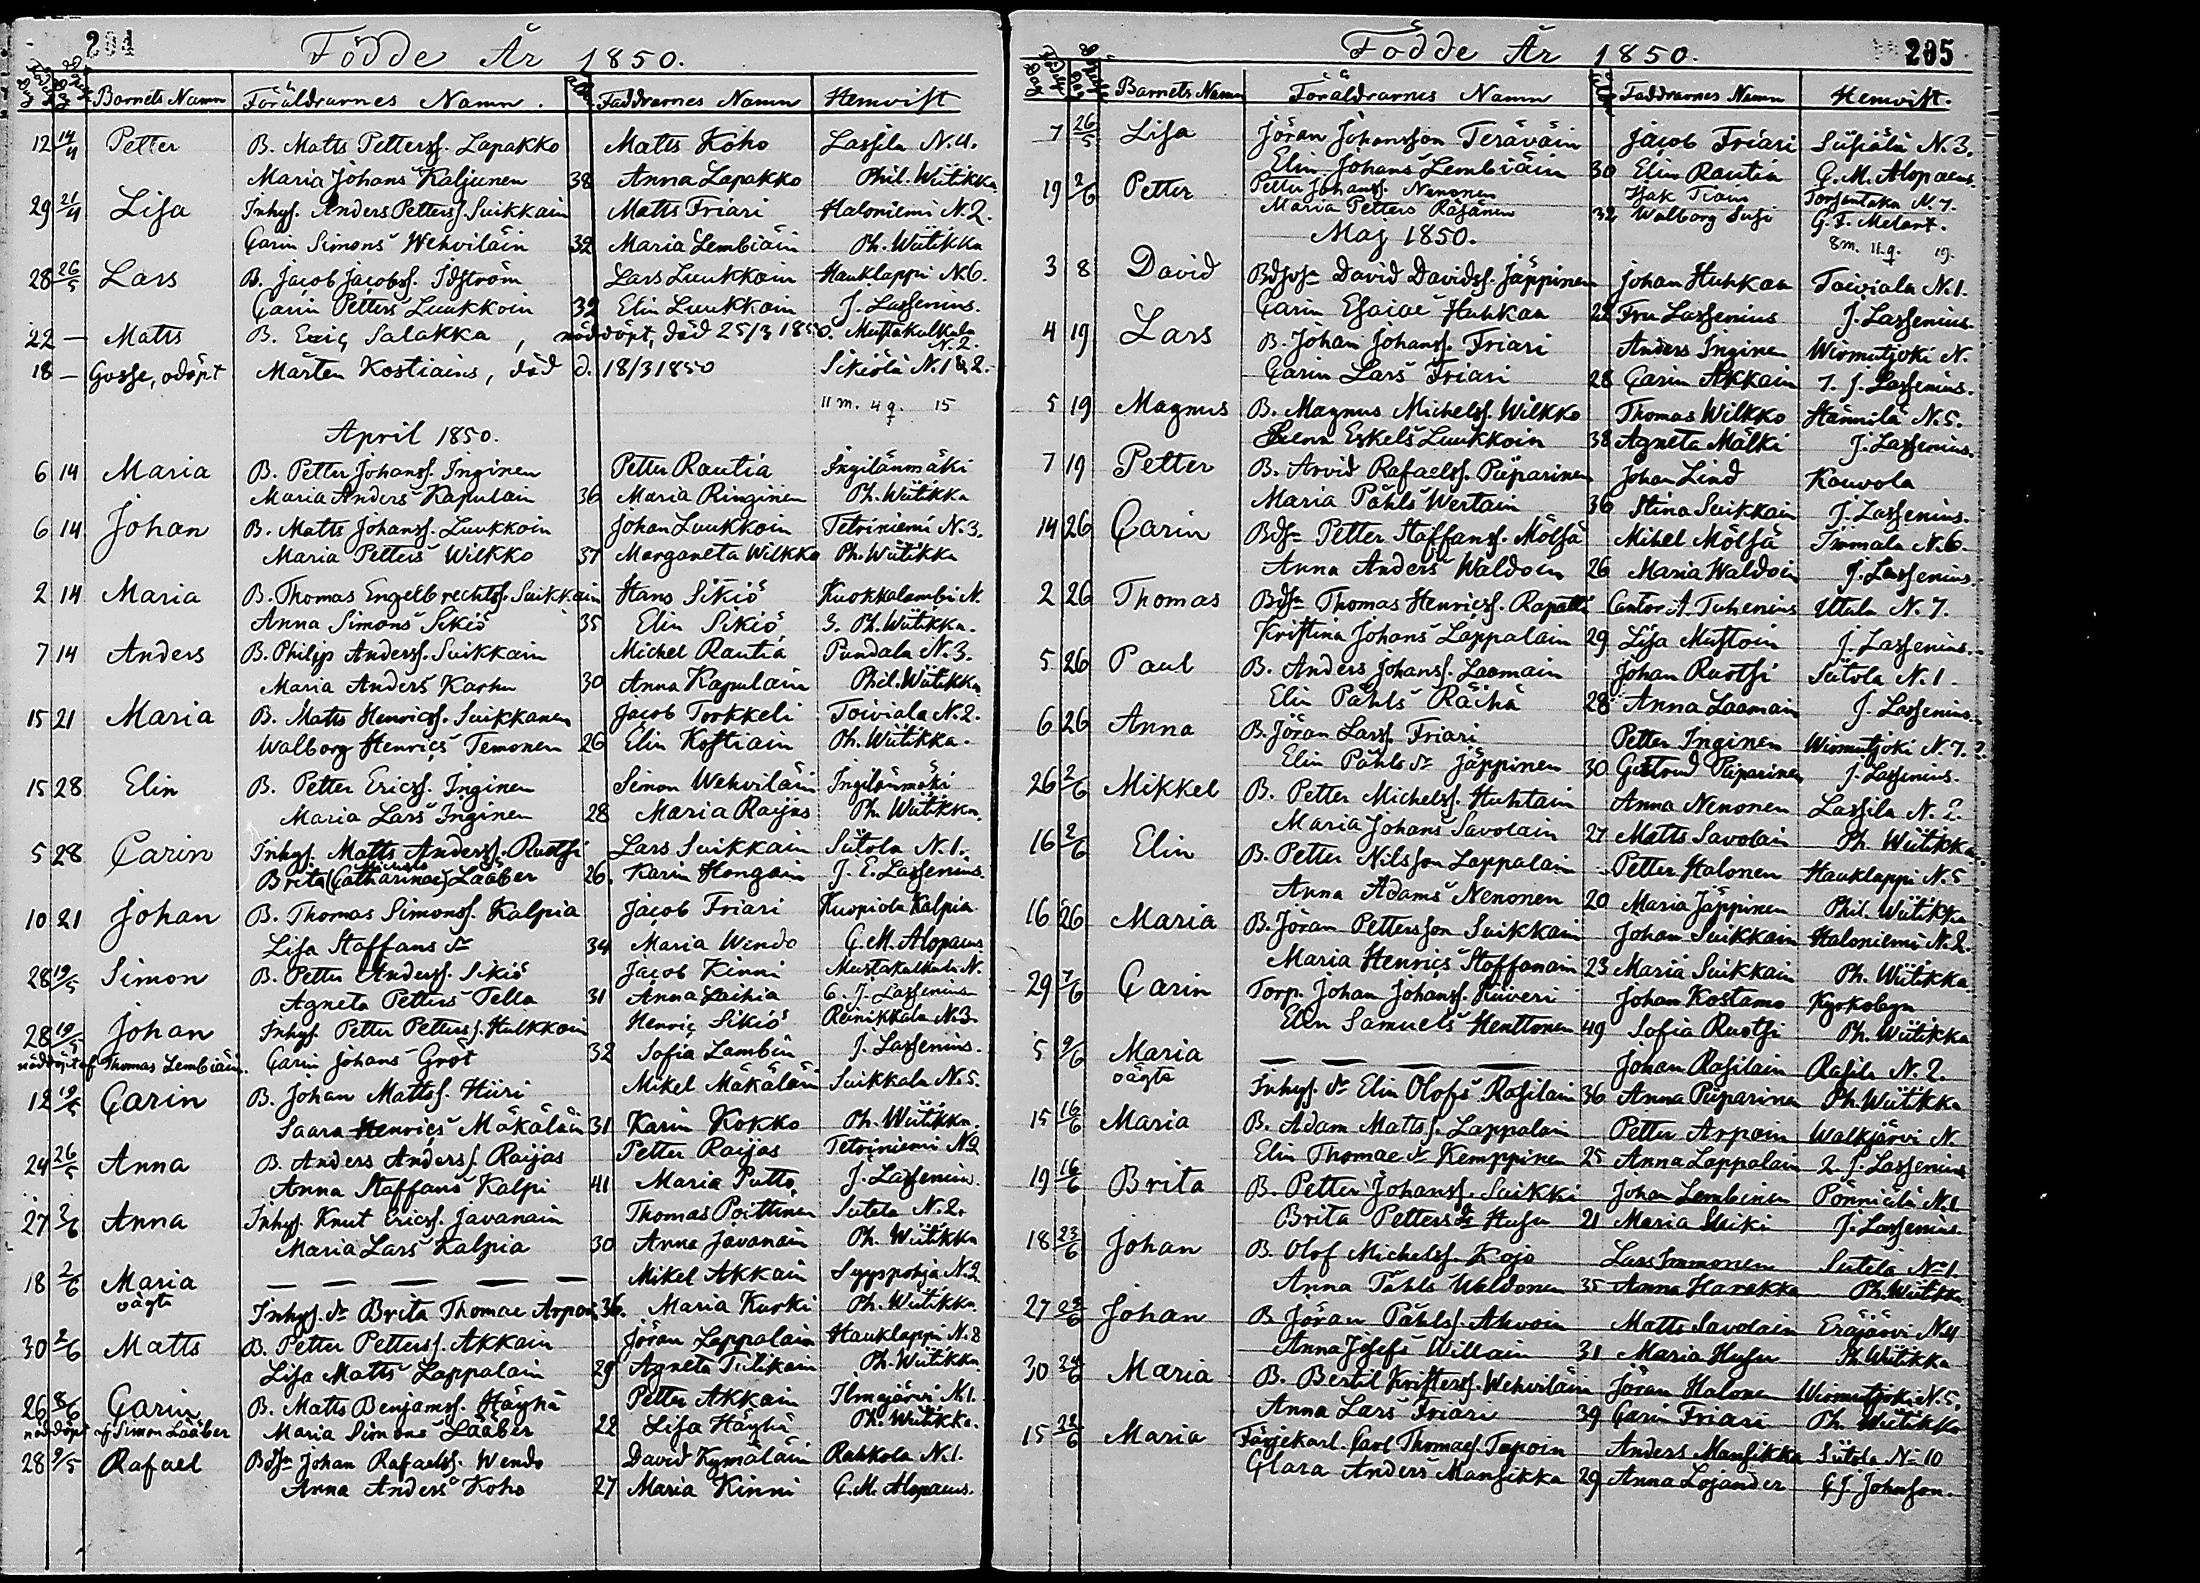 204
Födde År 1850.
Födelse Dag Döpelse Dag Barnets Namn Föräldrarnes Namn. Faddrarnes Namn Hemvist
12 14/4 Petter B. Matts Petterss. Lapakko Matts Koho Lassila N. 4.
Maria Johans Kaljunen 38 Anna Lapakko Phil. Wiitikka
29 21/4 Lisa Inhys. Anders Petterss. Suikkain Matts Friari Haloniemi N. 2.
Carin Simons Wehviläin 32 Maria Lembiäin Ph. Wiitikka
28 26/5 Lars B. Jacob Jacobss. Idström Lars Luukkain Hauklappi N. 6.
Carin Petters Luukkoin 32 Elin Luukkain J. Lassenius.
22 — Matts B. Eriç Salakka, nöddöpt, död 25/3 1850. Mustakulkala N. 2.
18 — Gosse, odöpt Mårten Kostiains, död d. 18/3 1850 Sikiölä N. 1 & 2.
11 m. 4 q. 15
April 1850.
6 14 Maria B. Petter Johanss. Inginen Petter Rautia Ingilänmäki
Maria Anders Kapulain 36 Maria Ringinen Ph. Wiitikka
6 14 Johan B. Matts Johanss. Luukkoin Johan Luukkoin Tetriniemi N. 3.
Maria Petters Wilkko 37 Margareta Wilkko Ph. Wiitikka
2 14 Maria B. Thomas Engelbrechtss. Suikkain Hans Sikiö Kuokkalambi N.
Anna Simons Sikiö 35 Elin Sikiö 3. Ph. Wiitikka.
7 14 Anders B. Philip Anderss. Suikkain Michel Rautia Pundala N. 3.
Maria Anders Karhu 30 Anna Kapulain Phil. Wiitikka
15 21 Maria B. Matts Henricss. Suikkanen Jacob Torkkeli Toiviala N. 2.
Walborg Henriçs Temonen 26 Elin Kostiain Ph. Wiitikka.
15 28 Elin B. Petter Ericss. Inginen Simon Wehviläin Ingilänmäki
Maria Lars Inginen 28 Maria Raijas Ph. Wiitikka.
5 28 Carin Inhys. Matts Anderss. Ruotsi Lars Suikkain Siitola N. 1.
Brita (Catharinae) Lääber 26. Karin Hongain J. E. Lassenius.
10 21 Johan B. Thomas Simonss. Kalpia Jacob Friari Kuopiola Kalpia
Lisa Staffans dr 34 Maria Wendo C. M. Alopaeus
28 19/5 Simon B. Petter Anderss. Sikiö Jacob Kinni Mustakulkula N.
Agneta Petters Tella 31 Anna Laihia 6. J. Lassenius
28 19/5 Johan Inhys. Petter Petterss. Hulkkoin Henriç Sikiö Reinikkala N. 3.
nöddöpt af Thomas Lembiäin. Carin Johans Gröt 32 Sofia Lambin J. Lassenius.
12 19/5 Carin B. Johan Mattss. Hiiri Mikel Mäkäläin Suikkala N. 5.
Saara Henriçs Mäkäläin 31 Karin Kokko Ph. Wiitikka.
24 26/5 Anna B. Anders Anderss. Raijas Petter Raijas Tetriniemi N. 2
Anna Staffans Kalpi 41 Maria Putto J. Lassenius
27 2/6 Anna Inhys. Knut Ericss. Javanain Thomas Poittinen Siitola N. 2.
Maria Lars Kalpia 30 Anna Javanain Ph. Wiitikka
18 2/6 Maria oägta — — — — — Mikel Akkain Syyspohja N. 2.
Inhys. dr Brita Thomae Arpon 36. Maria Kurki Ph. Wiitikka.
30 2/6 Matts B. Petter Petterss. Akkain Jöran Lappalain Hauklappi N. 8
Lisa Matts Lappalain 29 Agneta Tiilikain Ph. Wiitikka.
26 8/6 Carin B. Matts Benjamss. Häyhä Petter Akkain Ilmajärvi N. 1.
nöddöpt af Simon Lääber Maria Simons Lääber 22 Lisa Häyhä Ph. Wiitikka.
28 9/5 Rafael Bdsn Johan Rafaelss. Wendo David Kymäläin Rahkola N. 1.
Anna Anders Koho 27 Maria Kinni C. M. Alopaeus.
205
Födde År 1850.
Födelse Dag Döpelse Dag Barnets Namn Föräldrarnes Namn Faddrarnes Namn Hemvist.
7 26/5 Lisa Jöran Johansson Teräväin Jacob Friari Siisiälä N. 3.
Elin Johans Lembiäin 30 Elin Rautia C. M. Alopaeus.
19 2/6 Petter Petter Johanss. Nenonen Isak Tiain Torsantaka N. 7.
Maria Petters Räsänen 32 Walborg Susi G. F. Melart.
Maj 1850.
8 m. 11 q. 19.
3 8 David Bdson David Davidss. Jäppinen Johan Huhkaa Toiviala N. 1.
Carin Esaiae Huhkaa 22 Fru Lassenius J. Lassenius.
4 19 Lars B. Johan Johanss. Friari Anders Inginen Wirmutjoki N.
Carin Lars Friari 28 Carin Akkain 7. J. Lassenius.
5 19 Magnus B. Magnus Michelss. Wilkko Thomas Wilkko Hännilä N. 5.
Lena Eskels Luukkoin 38 Agneta Mälki J. Lassenius.
7 19 Petter B. Arvid Rafaelss. Piiparinen Johan Lind Kauvola
Maria Påhls Wertain 36 Stina Suikkain J. Lassenius.
14 26 Carin Bdsn Petter Staffanss. Mölsä Mikel Mölsä Immala N. 6.
Anna Anders Waldoin 26 Maria Waldoin J. Lassenius.
2 26 Thomas Bdsn Thomas Henricss. Rapatti Cantor A. Tuhenius Utula N. 7.
Kristina Johans Lappalain 29 Lisa Mustoin J. Lassenius.
5 26 Paul B. Anders Johanss. Laamain Johan Ruotsi Siitola N. 1.
Elin Påhls Räihä 28 Anna Laamain J. Lassenius.
6 26 Anna B. Jöran Larss. Friari Petter Inginen Wirmutjoki N. 7.
Elin Påhls dr Jäppinen 30 Gertrud Piiparinen J. Lassenius.
26 2/6 Mikkel B. Petter Michelss. Huhtain Anna Nenonen Lassila N. 2.
Maria Johans Savolain 27 Matts Savolain Ph. Wiitikka.
16 2/6 Elin B. Petter Nilsson Lappalain Petter Halonen Hauklappi N. 5
Anna Adams Nenonen 20 Maria Jäppinen Phil. Wiitikka
16 26 Maria B. Jöran Pettersson Suikkain Johan Suikkain Haloniemi N. 2.
Maria Henriçs Staffanain 23 Maria Suikkain Ph. Wiitikka.
29 7/6 Carin Torp. Johan Johanss. Kiiveri Johan Kostamo Kyrkobyn
Elin Samuels Henttonen 49 Sofia Ruotsi Ph. Wiitikka
5 9/6 Maria oägta — — — — Johan Rasilain Rasila N. 2.
Inhys. dr Elin Olofs Rasilain 36 Anna Piiparinen Ph. Wiitikka
15 16/6 Maria B. Adam Mattss. Lappalain Petter Arpain Walkjärvi N.
Elin Thomae dr Kemppinen 25 Anna Lappalain 2. J. Lassenius
19 16/6 Brita B. Petter Johanss. Suikki Johan Lembinen Pönniälä N. 1
Brita Petters dr Husu 21 Maria Suiki J. Lassenius.
18 23/6 Johan B. Olof Michelss. Kojo Lars Immonen Siitola No 1.
Anna Påhls Waldonen 35 Anna Harakka Ph. Wiitikka.
27 23/6 Johan B. Jöran Påhlss. Ahvoin Matts Savolain Eräjärvi N. 4
Anna Josefs Willain 31 Maria Husu Ph. Wiitikka
30 24/6 Maria B. Bertil Kristerss. Wehviläin Jöran Halonen Wirmutjoki N. 5.
Anna Lars Friari 39 Carin Friari Ph. Wiitikka
15 23/6 Maria Färjekarl. Carl Thomaes. Tapoin Anders Mansikka Siitola No 10
Clara Anders Mansikka 29 Anna Lojander G J. Johnson.